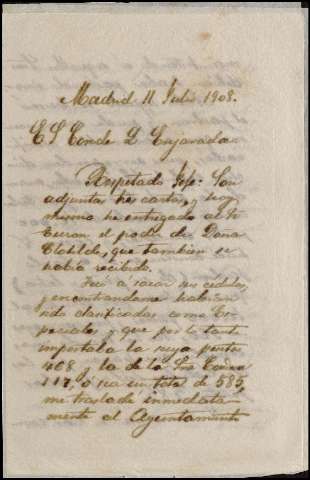 Madrid 11 Julio 1908.
E S Conde D
Respetado Jefe: Son
adjuntas tres cartas, y hoy
mismo he entregado al Sr
el poder de Dona
Clotilde, que tambien se
habia recibido.
Fui a sacar sus cedulas,
y encontrandome habian
sido clasificadas como Es
peciales y que por lo tanto
importaba la suya pesetas
468 y la de la Sra Condesa
117, ó sea un total de 585,
me traslade inmediata
mente al Ayuntamiento